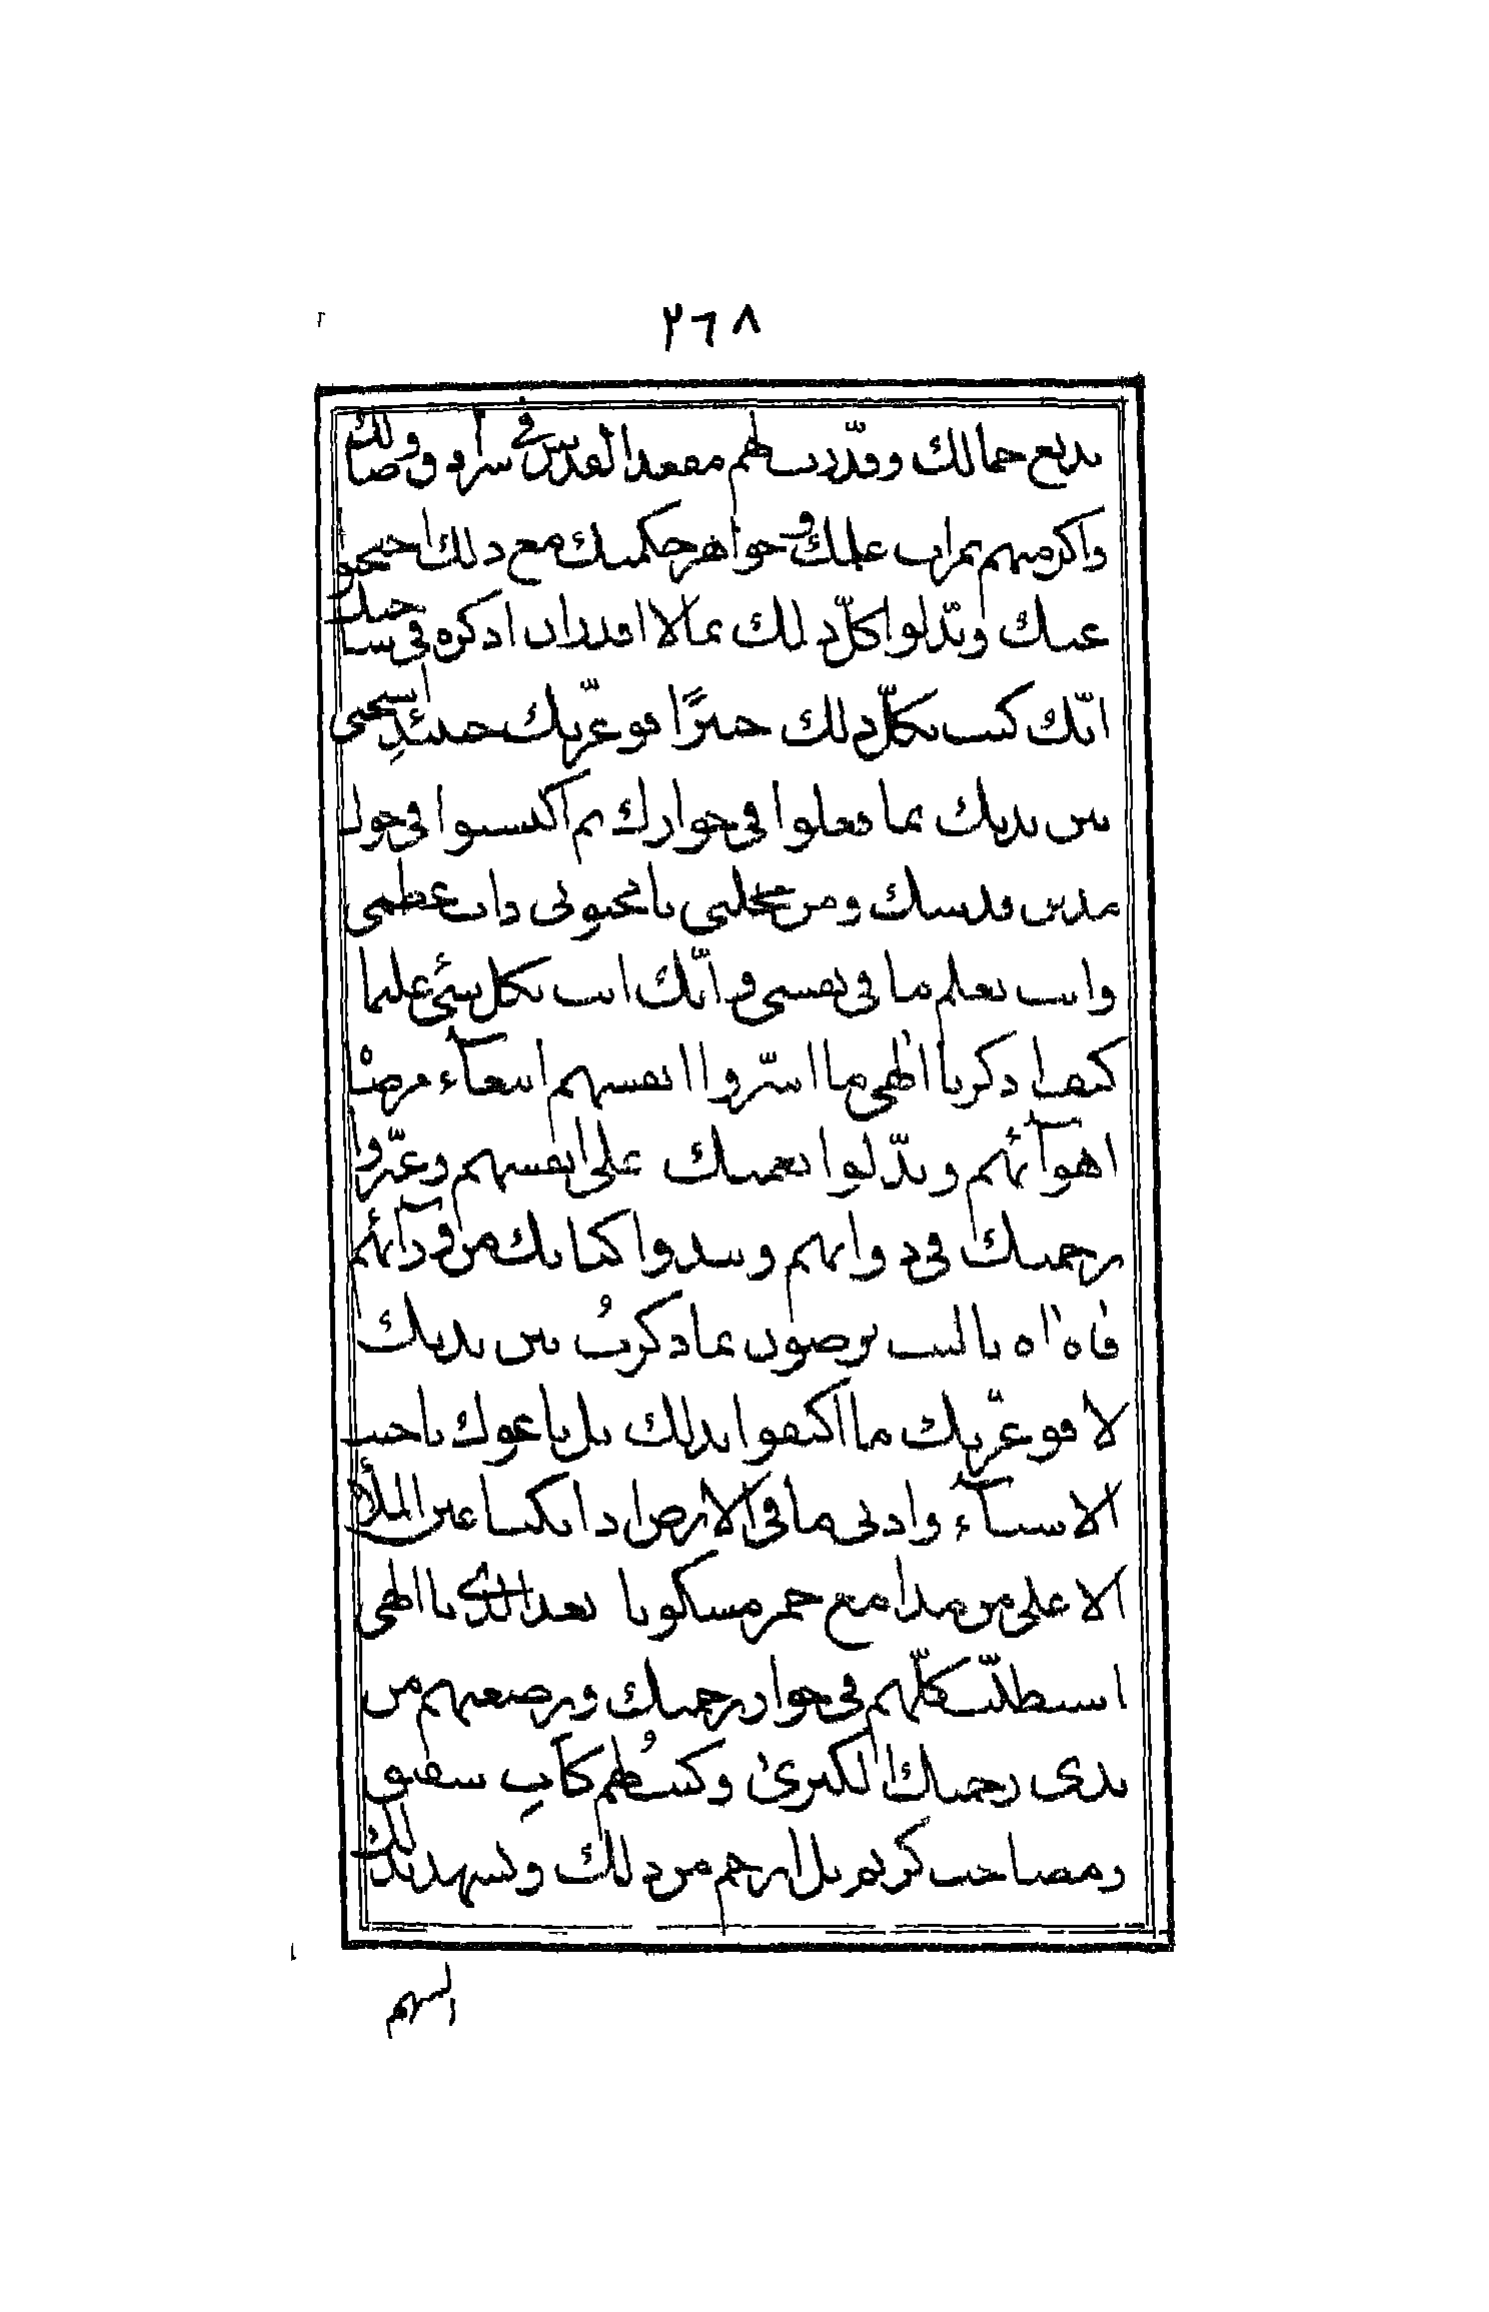 ٢٦٨
بديع جمالك وقدّرت لهم مقعد القدس في سرادق وصالك
واكرمتهم ثمرات علمك وجواهر حكمتك مع ذلك احتجبوا
عنك وبدّلوا كلّ ذلك بما لا اقدر ان اذكره في ساحتك
انّك كنت بكلّ ذلك خبيرًا فو عزّتك حينئذٍ استحيي
بين يديك بما فعلوا في جوارك ثم اكتسبوا في حول
مدين قدسك ومن خجلتي يا محبوبي ذاب عظمي
وانت تعلم ما في نفسي وانّك انت بكل شيء عليما
كيف اذكر يا الهي ما استرّوا انفسهم ابتغآء مرضات
اهوآئهم وبدّلوا نعمتك على انفسهم وغيّروا
رحمتك في ذواتهم ونبذوا كتابك من ورآئهم
فاه اه يا ليت يرضون بما ذكرتُ بين يديك
لا فو عزّتك ما اكتفوا بذلك بل باعوك باخسّ
الاشيآء وادنى ما في الارض اذا بكت عين الملأ
الاعلى من مدامع حمر مسكوبا بعد الذي يا الهي
استظلّت كلّهم في جوار رحمتك ورضعتهم من
ثدي رحمتك الكبرى وكنت لهم كابٍ شفيق
ومصاحب كريم بل ارحم من ذلك وتشهد بذلك
السهم